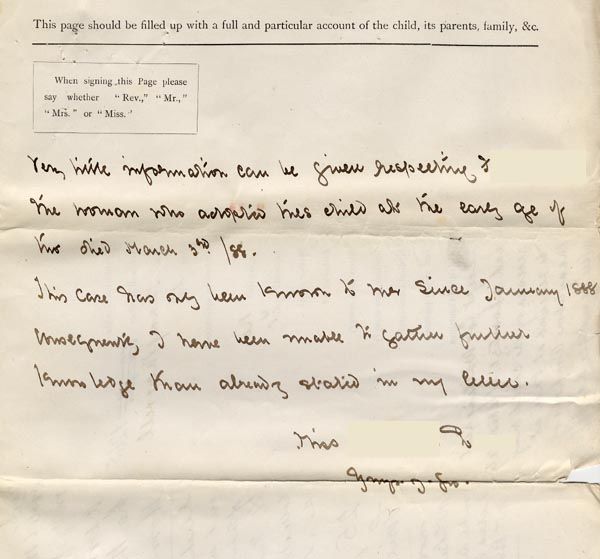 This page should be filled up with a full and particular account of the child, its parents, family, &c.
When signing this Page please
say whether "Rev.," "Mr.,"
"Mrs." or "Miss."
Very little information can be given respecting
the woman who adopted this child at the early age of
two died March 3rd /88.
This case has only been known to me since January 1888
consequently I have been unable to gather further
knowledge than already stated in my letter.
Miss